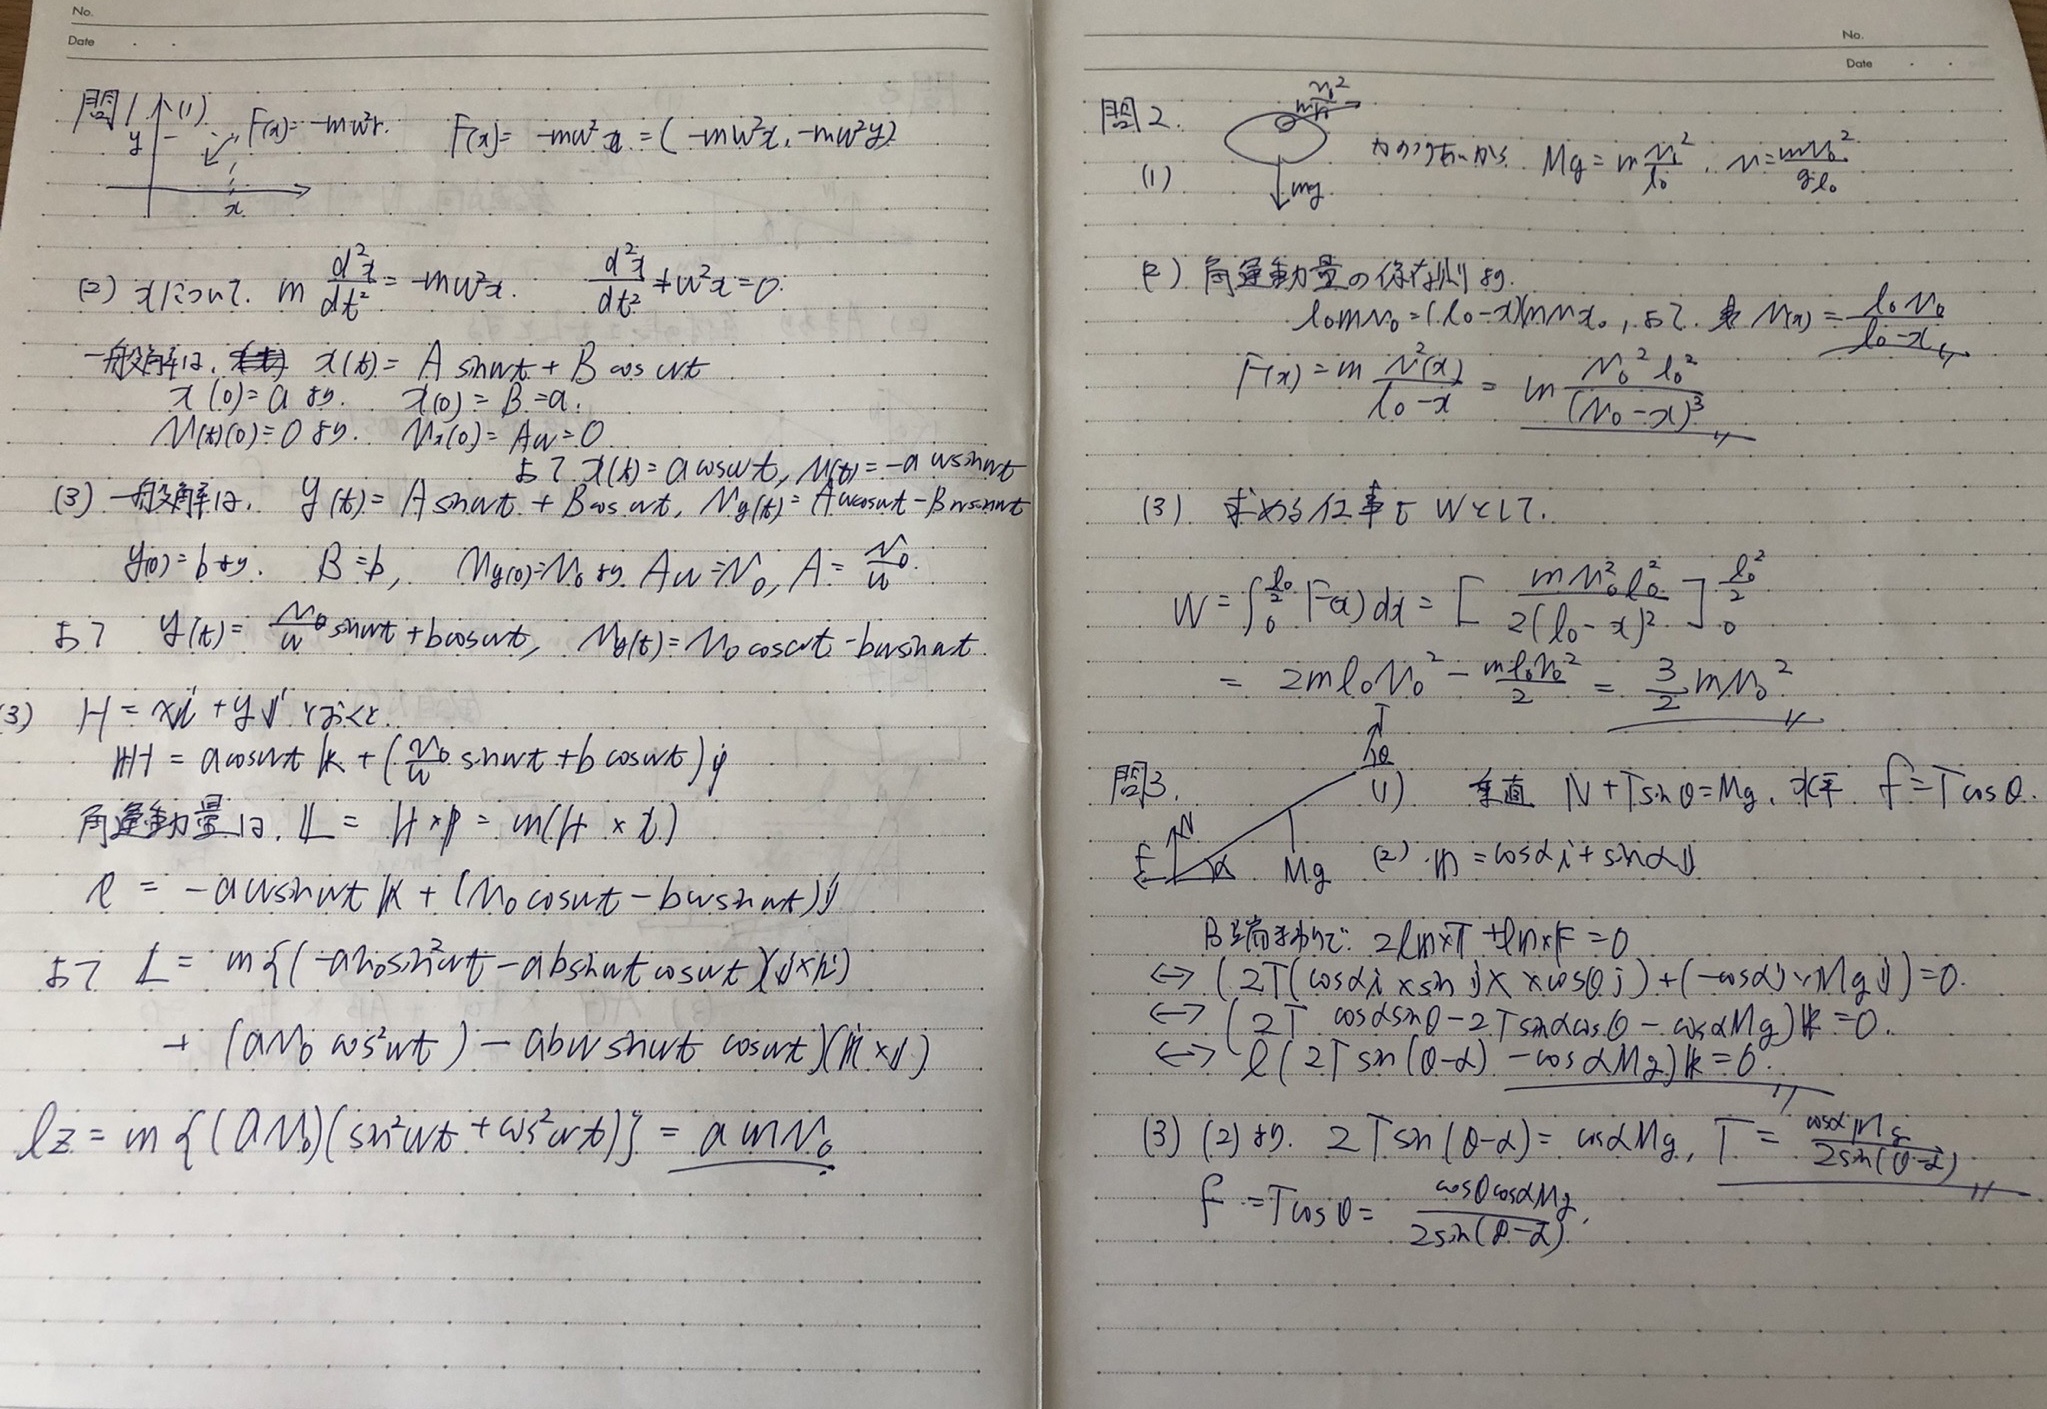 No.
Date
問1 (1) F(x)= -mω²r. F(x)= -mω²x = (-mω²x, -mω²y)
y
x
(2) xについて. m d²x/dt² = -mω²x. d²x/dt² + ω²x=0.
一般解は, x(t)= A sinωt + B cos ωt
x(0)=a より. x(0)= B =a.
v(t)(0)=0 より. vx(0)= Aω=0
よって x(t)= a cosωt, v(t)= -a ωsinωt
(3) 一般解は, y(t)= A sinωt + B cos ωt, vy(t)= Aωcosωt - Bωsinωt
y(0)=b より. B=b, vy(0)=v0 より Aω=v0, A= v0/ω.
よって y(t)= v0/ω sinωt + bcosωt, vy(t)=v0 cosωt - bωsinωt.
(3) r = xi + yj とおくと.
r = acosωt k + (v0/ω sinωt + b cosωt) j
角運動量は, L = r × p = m(r × ṙ)
ṙ = -aωsinωt k + (v0 cosωt - bωsinωt)j
よって L = m{(-av0sin²ωt - absinωt cosωt)(j×k)
+ (av0 cos²ωt) - abω sinωt cosωt)(k×j)
lz = m{(av0)(sin²ωt + cos²ωt)} = amv0
No.
Date
問2. m v0²/l0
mg
(1) 力のつりあいから Mg = m v0²/l0, m = mv0²/gl0
(2) 角運動量の保存則より.
l0mv0=(l0-x)mvx0, よって, v(x) = l0v0/l0-x
F(x) = m v²(x)/l0-x = m v0² l0²/(v0-x)³
(3) 求める仕事を Wとして.
W = ∫0 l0/2 F(x) dx = [ mv0²l0²/2(l0-x)² ] 0 l0²/2
= 2ml0v0² - ml0v0²/2 = 3/2 mv0²
T
θ
問3. (1) 垂直 N+Tsinθ=Mg, 水平 f=Tcosθ.
N
f α Mg (2) n = cosαi + sinαj
B端まわりで. 2ln×T + ln×F = 0
↔ (2T(cosαi × sin j) × cosθj) + (-cosαi × Mgj) = 0.
↔ (2T cosαsinθ - 2Tsinαcosθ - cosαMg)k = 0.
↔ l(2Tsin(θ-α) - cosαMg)k = 0.
(3) (2)より. 2Tsin(θ-α) = cosαMg, T = cosαMg/2sin(θ-α)
f = Tcosθ = cosθcosαMg/2sin(θ-α).